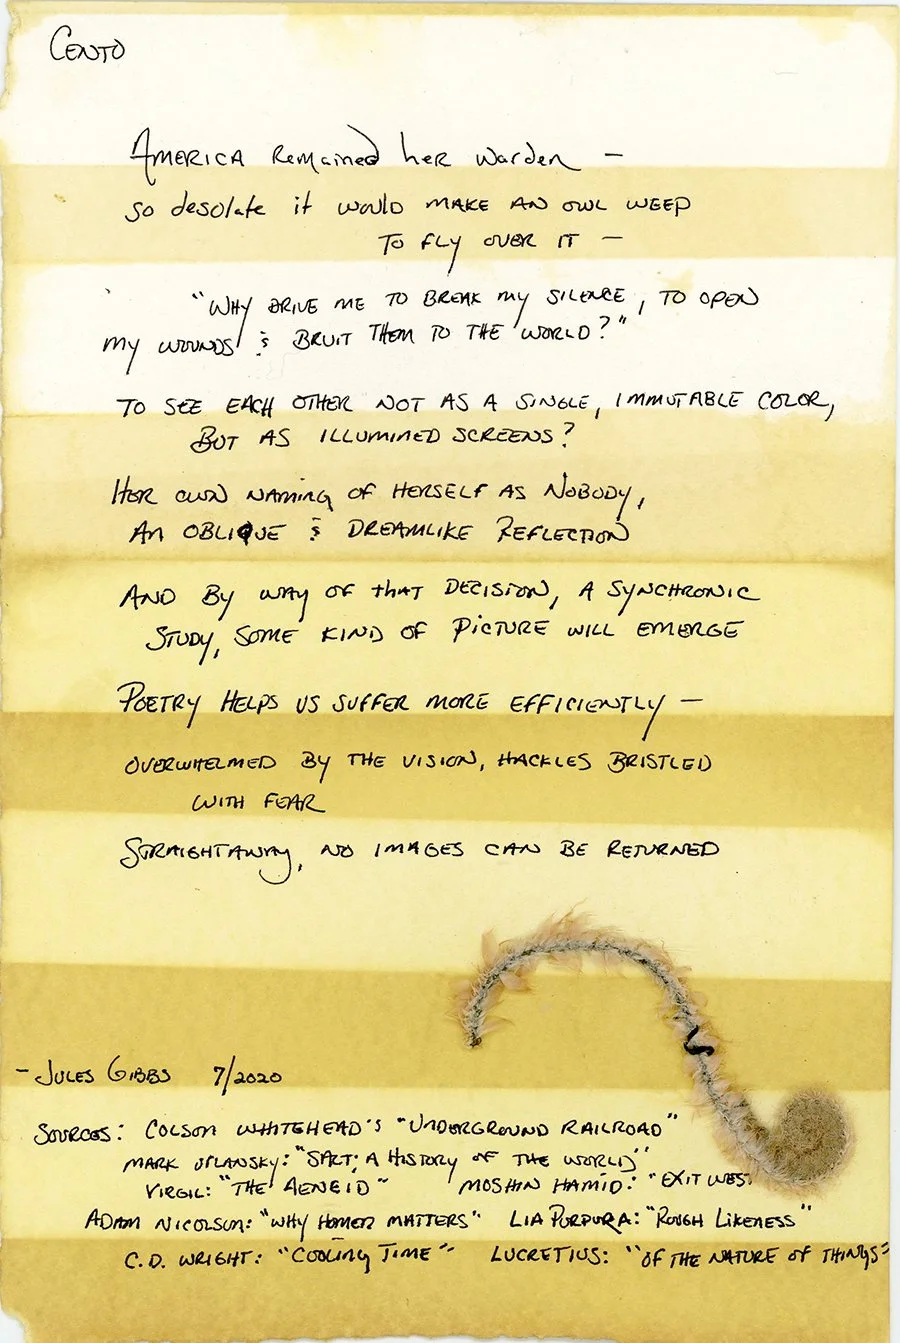 CENTO
AMERICA Remained her warden —
so desolate it would MAKE AN OWL WEEP
TO FLY OVER IT —
"WHY DRIVE ME TO BREAK MY SILENCE, TO OPEN
MY WOUNDS & BRUIT THEM TO THE WORLD?"
TO SEE EACH OTHER NOT AS A SINGLE, IMMUTABLE COLOR,
BUT AS ILLUMINED SCREENS?
HER OWN NAMING OF HERSELF AS NOBODY,
AN OBLIQUE & DREAMLIKE REFLECTION
AND BY WAY OF THAT DECISION, A SYNCHRONIC
STUDY, SOME KIND OF PICTURE WILL EMERGE
POETRY HELPS US SUFFER MORE EFFICIENTLY —
OVERWHELMED BY THE VISION, HACKLES BRISTLED
WITH FEAR
STRAIGHTAWAY, NO IMAGES CAN BE RETURNED
— JULES GIBBS 7/2020
SOURCES: COLSON WHITEHEAD'S "UNDERGROUND RAILROAD"
MARK "SALT: A HISTORY OF THE WORLD"
VIRGIL: "THE AENEID" MOSHIN HAMID: "EXIT WES
ADAM NICOLSON: "WHY HOMER MATTERS" LIA PURPURA: "ROUGH LIKENESS"
C.D. WRIGHT: "COOLING TIME" LUCRETIUS: "OF THE NATURE OF THINGS"